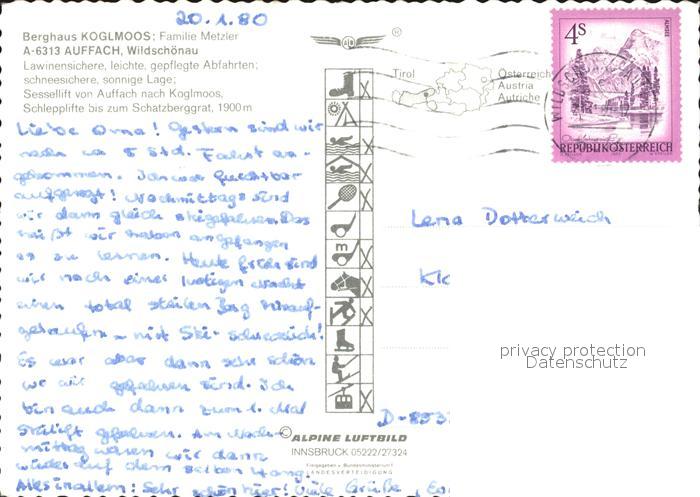 20.1.80
Berghaus KOGLMOOS; Familie Metzler
A-6313 AUFFACH, Wildschönau
Lawinensichere, leichte, gepflegte Abfahrten;
schneesichere, sonnige Lage;
Sessellift von Auffach nach Koglmoos,
Schlepplifte bis zum Schatzberggrat, 1900 m
Liebe Oma! Gestern sind wir
nach ca 8 Std. Fahrt an-
gekommen. Ich war furchtbar
aufgeregt! Nachmittags sind
wir dann gleich skigefahren. Das
heißt wir haben angefangen
es zu lernen. Heute früh sind
wir nach einer lustigen Nacht
einen total steilen Berg hinauf-
gelaufen - mit Ski - schrecklich!
Es war aber dann sehr schön
wo wir gefahren sind. Ich
bin auch dann zum 1. Mal
Skilift gefahren. Am Nach-
mittag waren wir dann
wieder auf dem selben Hang.
Alles in allem: Sehr schön hier! Viele Grüße
Tirol
Österreich
Austria
Autriche
4s
ALMSEE
REPUBLIK ÖSTERREICH
Lena Dotterweich
privacy protection
Datenschutz
D-853
© ALPINE LUFTBILD
INNSBRUCK 05222/27324
Freigegeben v. Bundesministerium f.
LANDESVERTEIDIGUNG